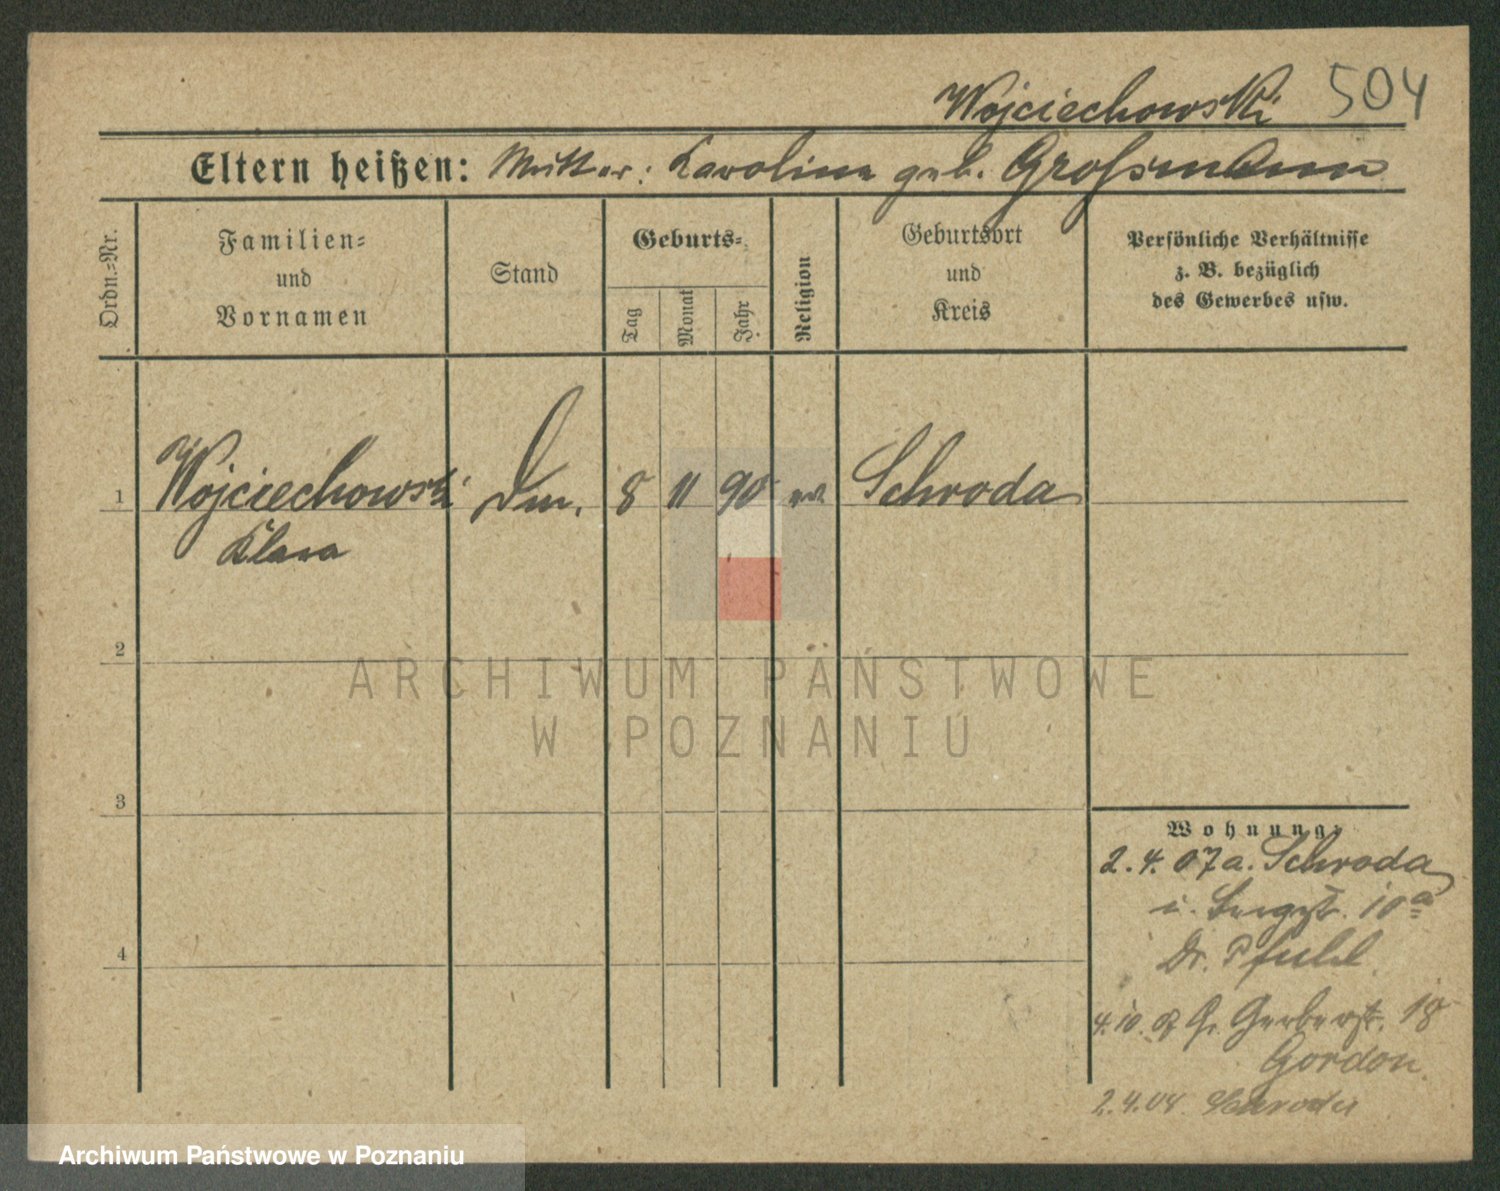 Wojciechowski 504
Eltern heißen: Mutter: Karolina geb. Großmann
Ordn.-Nr.
Familien-
und
Vornamen
Stand
Geburts-
Tag
Monat
Jahr
Religion
Geburtsort
und
Kreis
Persönliche Verhältnisse
z. B. bezüglich
des Gewerbes usw.
1 Wojciechowski 8 11 90 Schroda
Klara
2
ARCHIWUM PAŃSTWOWE
W POZNANIU
3
4
Wohnung:
2.4.07 a. Schroda
i. Bergstr. 10a
Dr. Pfuhl
4.10.07 Gr. Gerberstr. 18
Gordon
2.4.08 Schroda
Archiwum Państwowe w Poznaniu